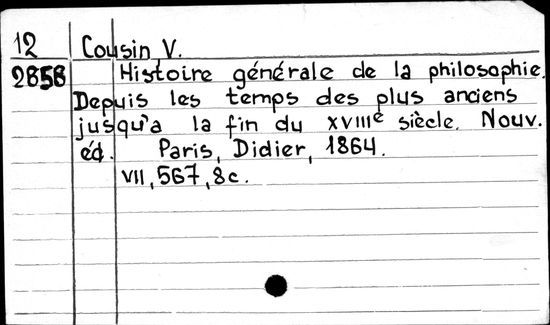 12 Cousin V.
2858 Histoire générale de la philosophie.
Depuis les temps des plus anciens
jusqu'a la fin du XVIIIe siècle. Nouv.
éd. Paris, Didier, 1864.
VII, 567, 8c.